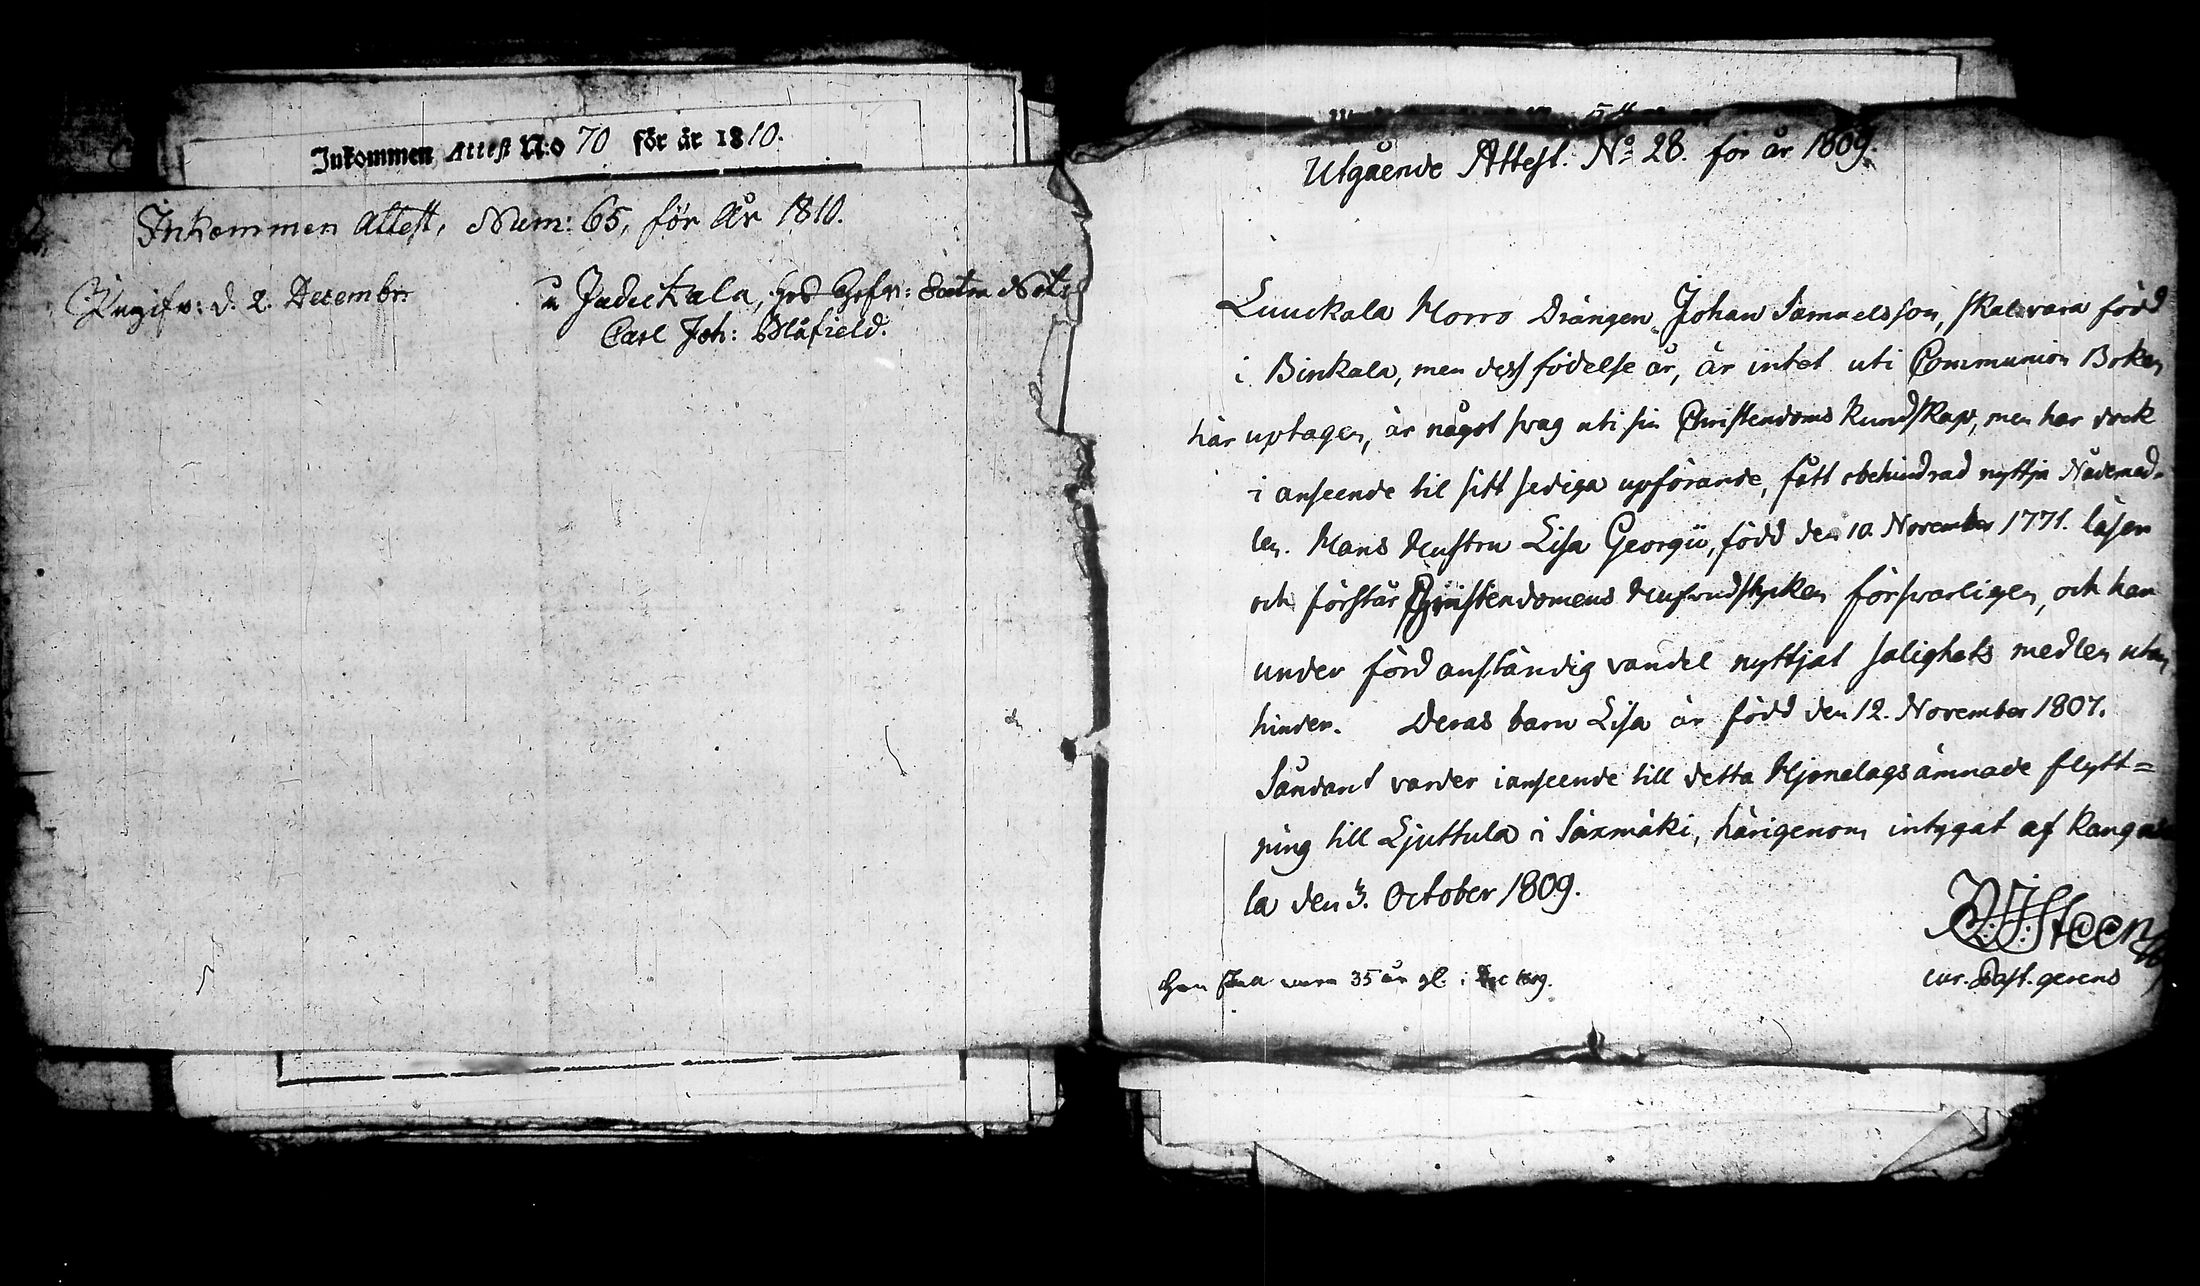 Inkommen Attest N:o 70 för år 1810.
Inkommen Attest, Num: 65, för År 1810.
Angifv: d. 2. Decembr
Carl Joh: Blåfield.
Utgående Attest. No 28. för år 1809.
Luuckala Horro Drängen Johan Samuelsson, skal vara född
i Binkala, men dess födelse år, är intet uti Communion Boken
här uptagen, är något svag uti sin Christendoms kundskap, men har dock
i anseende til sitt sediga upförande, fått obehindrad nyttja Nådemed-
len. Hans Hustru Lisa Georgii, född den 10. November 1771. läser
och förstår Christendomens Hufvudstycken försvarligen, och har
under förd anständig vandel nyttjat salighets medlen utan
hinder. Deras barn Lisa är född den 12. November 1807.
Såndant varder i anseende till detta Hjonelags ämnade flytt=
ning till Ljuttula i Säxmäki, härigenom intygat af Kangasa
la den 3. October 1809.
Steen
cur. Past. gerens
vara 35 år gl. i Dec 1809.